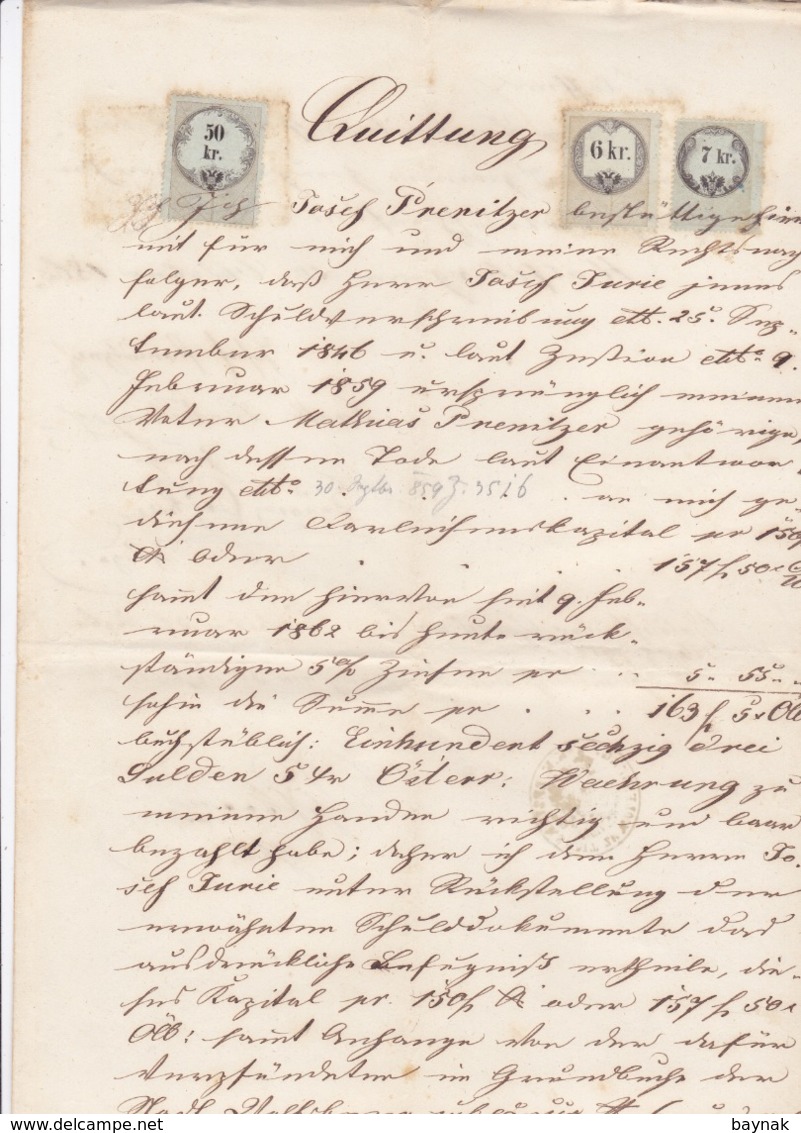 Quittung
50 kr.
6 kr.
7 kr.
Ich Josef Prenitzer bestättige hier
mit für mich und meine Rechtsnach
folger, daß Herr Josef Jurie jenes
laut Schuldverschreibung dto. 25. Sep-
tember 1846 u. laut Zession dto. 9.
Februar 1859 ursprünglich meinem
Vater Mathias Prenitzer gehörige,
nach dessen Tode laut Einantwor-
tung dto. 30 859 Z. 3516 an mich ge-
diehene Darleihenskapital pr 150f
oder 157 f 50
sammt den hievon seit 9. Feb-
ruar 1862 bis heute rück-
ständigen 5% Zinsen pr 5 " 55 "
sohin die Summe pr 163 f 5 x
buchstäblich: Einhundert sechzig drei
Gulden 5 xr Österr: Waehrung zu
meinen Handen richtig und baar
bezahlt habe; daher ich dem Herrn Jo-
sef Jurie unter Rückstellung der
erwähnten Schulddokumente das
ausdrückliche Befugniß ertheile, die-
ses Kapital pr. 150f oder 157 f 50 x
ÖW: sammt Anhange von der dafür
verpfändeten im Grundbuche der
Stadt
baynak